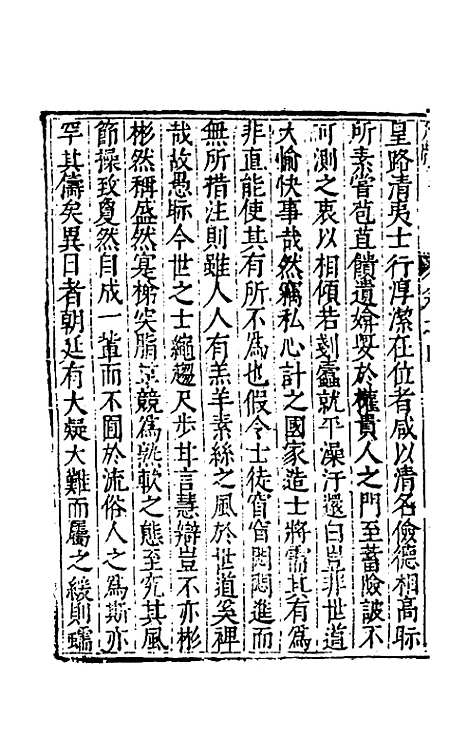 皇路清夷士行淳潔在位者咸以清名儉德相高眎
所素嘗苞苴饋遺婾娿於權貴人之門至蓄險詖不
可測之衷以相傾若刻蠹就平澡汙還白豈非世道
大愉快事哉然竊私心計之國家造士將需其有為
非直能使其有所不為也假令士徒窅窅悶悶進而
無所措注則雖人人有羔羊素絲之風於世道奚裨
哉故愚眎今世之士繩趨尺步甘言慧辯豈不亦彬
彬然稱盛然寔榆突脂韋競為骫軟之態至究其風
節操致敻然自成一輩而不囿於流俗人之為斯亦
罕其儔矣異日者朝廷有大疑大難而屬之緩則